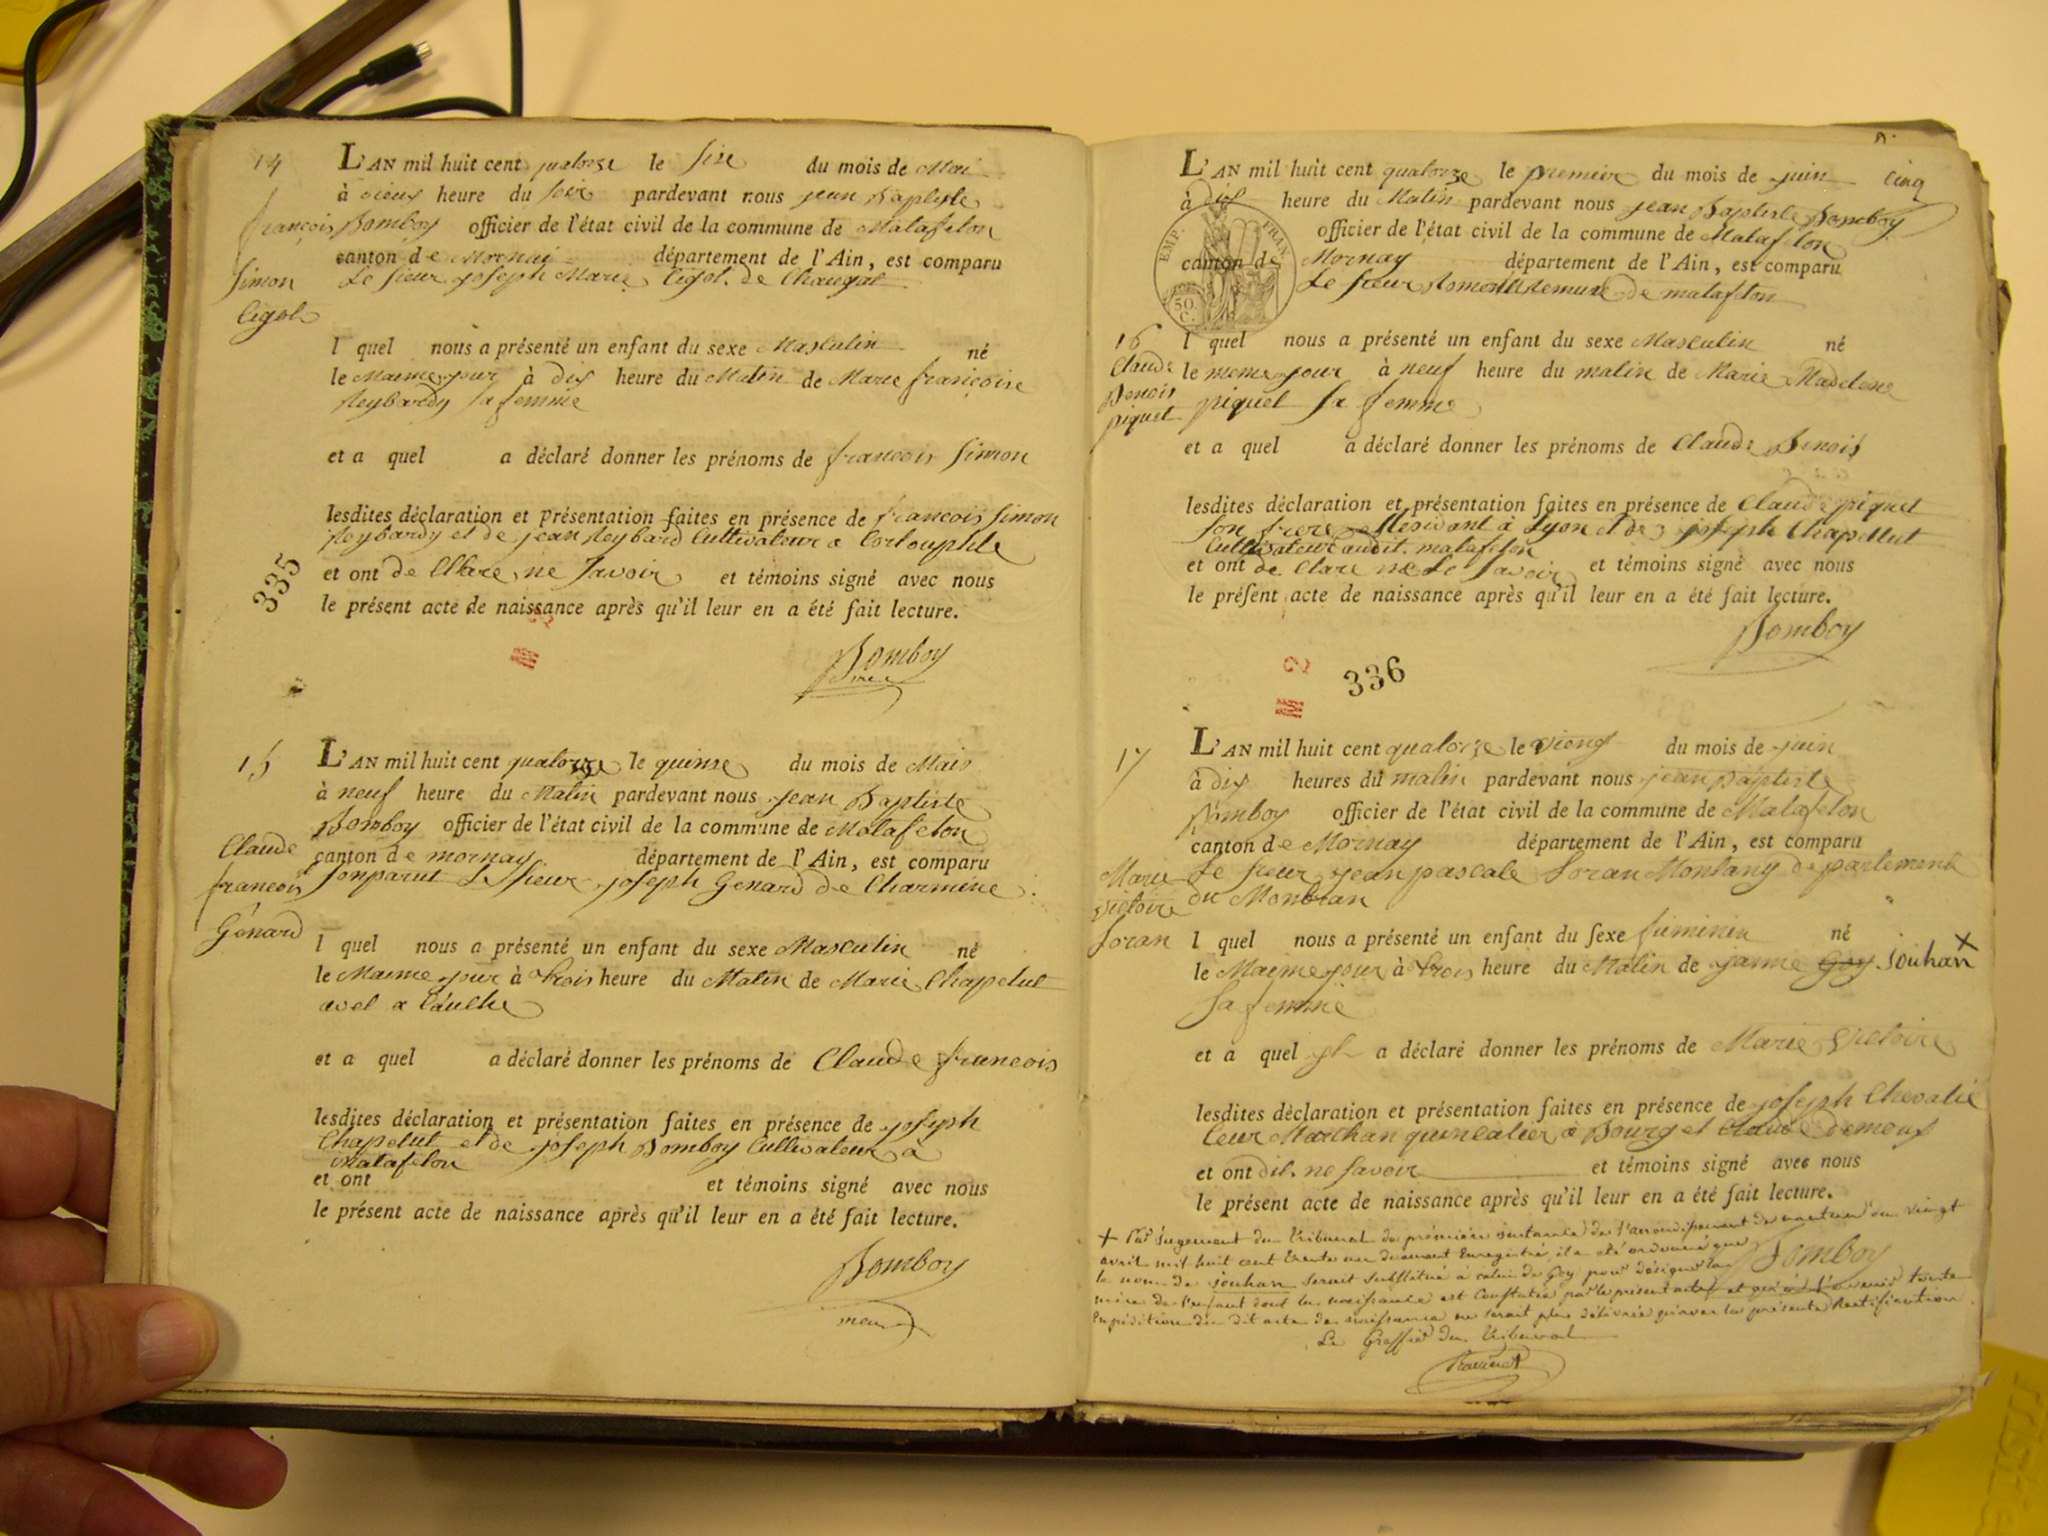 14
L'AN mil huit cent quatorze le sixe du mois de Mai
à deux heure du soir pardevant nous jean Baptiste
Bomboy officier de l'état civil de la commune de Matafelon
canton de Mornai département de l'Ain, est comparu
Le sieur joseph Marie Cigol de Chaugat
françois
Simon
Cigol
l quel nous a présenté un enfant du sexe Masculin né
le Maime jour à dix heure du Matin de Marie françoise
Reybardy sa femme
et a quel a déclaré donner les prénoms de francois Simon
lesdites déclaration et présentation faites en présence de francois Simon
Reybardy et de jean Reybard Cultivateur a
et ont de Clare ne Savoir et témoins signé avec nous
le présent acte de naissance après qu'il leur en a été fait lecture.
335
Bomboy
15
L'AN mil huit cent quatorze le quinse du mois de Mais
à neuf heure du Matin pardevant nous jean Baptiste
Bomboy officier de l'état civil de la commune de Matafelon
canton de mornay département de l'Ain, est comparu
Le sieur joseph Genard de Charmine
Claude
francois
Génard
l quel nous a présenté un enfant du sexe Masculin né
le Maime jour à trois heure du Matin de Marie Chapelut
et a quel a déclaré donner les prénoms de Claude francois
lesdites déclaration et présentation faites en présence de joseph
Chapelut et de joseph Bomboy Cultivateur a
Matafelon
et ont et témoins signé avec nous
le présent acte de naissance après qu'il leur en a été fait lecture.
Bomboy
L'AN mil huit cent quatorze le premier du mois de juin cinq
à dix heure du Matin pardevant nous jean Baptiste Bomboy
officier de l'état civil de la commune de Matafelon
canton de Mornay département de l'Ain, est comparu
Le sieur de matafelon
EMP. FRAN.
50
C.
16
Claude
Benois
piquet
l quel nous a présenté un enfant du sexe Masculin né
le meme jour à neuf heure du matin de Marie Madelene
piquet sa femme
et a quel a déclaré donner les prénoms de Claude Benois
lesdites déclaration et présentation faites en présence de Claude piquet
son frere Residant à Lyon et de joseph Chapellut
Cultivateur audit matafelon
et ont de Clare ne le savoir et témoins signé avec nous
le présent acte de naissance après qu'il leur en a été fait lecture.
Bomboy
2
336
17
L'AN mil huit cent quatorze le viengt du mois de juin
à dix heures du matin pardevant nous jean Baptiste
Bomboy officier de l'état civil de la commune de Matafelon
canton de Mornay département de l'Ain, est comparu
Le sieur jean pascale Soran Montany de partement
du Monblan
Marie
victoire
Soran
l quel nous a présenté un enfant du sexe fuminin né
le Maime jour à trois heure du Matin de janne Goy jouhan
sa femme
et a quel a déclaré donner les prénoms de Marie victoire
lesdites déclaration et présentation faites en présence de joseph Chevalié
Marchan quincalier à Bourg et Claude
et ont dit ne savoir et témoins signé avec nous
le présent acte de naissance après qu'il leur en a été fait lecture.
+ Par Jugement du Tribunal de première instance de l'arrondissement de nantua du vingt
avril mil huit cent trente un duement Enregistré il a été ordonné que
Bomboy
le nom de jouhan serait substitué à celui de Goy pour désigner la
mère de l'enfant dont la naissance est Constatée par le présent acte et qu'à l'avenir toute
Expédition du dit acte de naissance ne serait plus délivrée qu'avec la présente Rectification
Le Greffier du tribunal